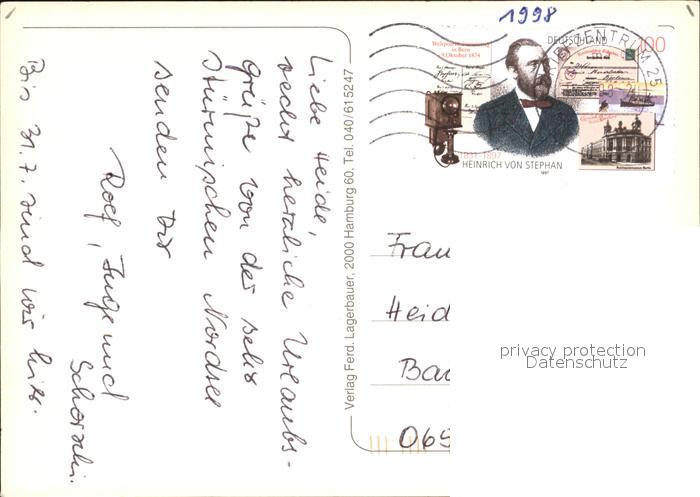 1998
DEUTSCHLAND 100
HEINRICH VON STEPHAN
1831-1897
1997
BRIEFZENTRUM 25
Liebe Heide,
recht herzliche Urlaubs-
grüße von der sehr
stürmischen Nordsee
senden Dir
Rolf, Inge und
Schorschi.
Bis 31.7. sind wir hier.
Verlag Ferd. Lagerbauer, 2000 Hamburg 60. Tel. 040/615247
Frau
Heid
Bau
065
privacy protection
Datenschutz